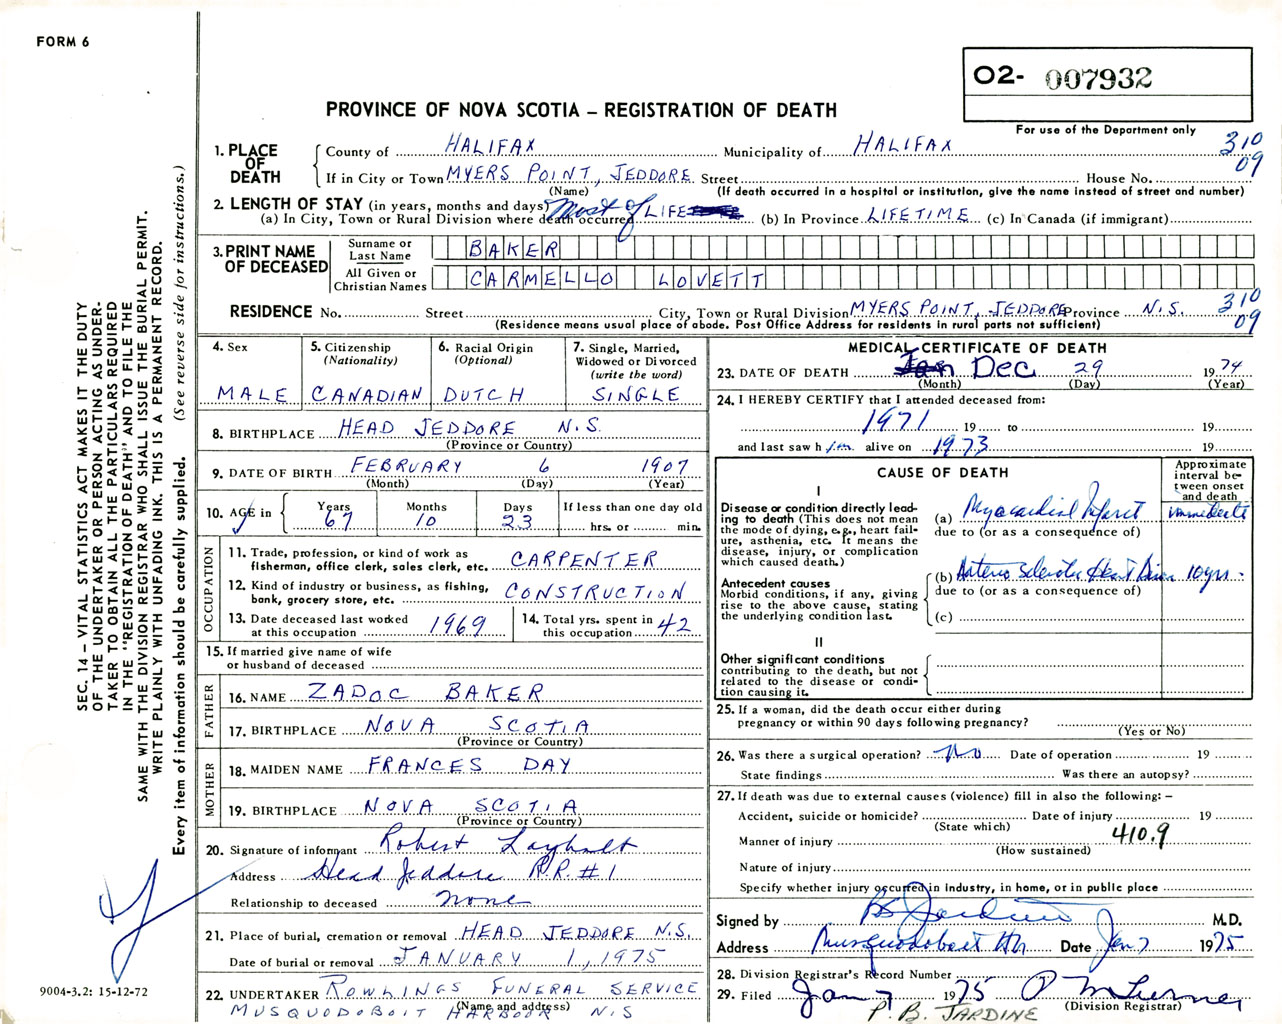 FORM 6
O2- 007932
PROVINCE OF NOVA SCOTIA – REGISTRATION OF DEATH
For use of the Department only
1. PLACE OF DEATH
County of HALIFAX Municipality of HALIFAX 310
If in City or Town MYERS POINT, JEDDORE Street House No. 09
(Name) (If death occurred in a hospital or institution, give the name instead of street and number)
2. LENGTH OF STAY (in years, months and days)
(a) In City, Town or Rural Division where death occurred Most of LIFE (b) In Province LIFETIME (c) In Canada (if immigrant)
3. PRINT NAME OF DECEASED
Surname or Last Name BAKER
All Given or Christian Names CARMELLO LOVETT
RESIDENCE No. Street City, Town or Rural Division MYERS POINT, JEDDORE Province N.S. 310
(Residence means usual place of abode. Post Office Address for residents in rural parts not sufficient) 09
4. Sex
MALE
5. Citizenship
(Nationality)
CANADIAN
6. Racial Origin
(Optional)
DUTCH
7. Single, Married,
Widowed or Divorced
(write the word)
SINGLE
8. BIRTHPLACE HEAD JEDDORE N.S.
(Province or Country)
9. DATE OF BIRTH FEBRUARY 6 1907
(Month) (Day) (Year)
10. AGE in
Years Months Days If less than one day old
67 10 23 hrs. or min.
OCCUPATION
11. Trade, profession, or kind of work as
fisherman, office clerk, sales clerk, etc. CARPENTER
12. Kind of industry or business, as fishing,
bank, grocery store, etc. CONSTRUCTION
13. Date deceased last worked
at this occupation 1969
14. Total yrs. spent in
this occupation 42
15. If married give name of wife
or husband of deceased
FATHER
16. NAME ZADOC BAKER
17. BIRTHPLACE NOVA SCOTIA
(Province or Country)
MOTHER
18. MAIDEN NAME FRANCES DAY
19. BIRTHPLACE NOVA SCOTIA
(Province or Country)
20. Signature of informant Robert
Address Head Jeddore R.R. #1
Relationship to deceased none
21. Place of burial, cremation or removal HEAD JEDDORE N.S.
Date of burial or removal JANUARY 1, 1975
22. UNDERTAKER ROWLINGS FUNERAL SERVICE
(Name and address)
MUSQUODOBOIT HARBOUR N.S
MEDICAL CERTIFICATE OF DEATH
23. DATE OF DEATH Jan Dec 29 1974
(Month) (Day) (Year)
24. I HEREBY CERTIFY that I attended deceased from:
1971 19 to 19
and last saw h im alive on 1973 19
CAUSE OF DEATH
Approximate
interval be-
tween onset
and death
I
Disease or condition directly lead-
ing to death (This does not mean
the mode of dying, e.g., heart fail-
ure, asthenia, etc. It means the
disease, injury, or complication
which caused death.)
(a) Myocardial Infarct immediate
due to (or as a consequence of)
Antecedent causes
Morbid conditions, if any, giving
rise to the above cause, stating
the underlying condition last.
(b) Arterio Sclerotic Heart Disease 10 yrs.
due to (or as a consequence of)
(c)
II
Other significant conditions
contributing to the death, but not
related to the disease or condi-
tion causing it.
25. If a woman, did the death occur either during
pregnancy or within 90 days following pregnancy?
(Yes or No)
26. Was there a surgical operation? No Date of operation 19
State findings Was there an autopsy?
27. If death was due to external causes (violence) fill in also the following: –
Accident, suicide or homicide? Date of injury 19
(State which)
Manner of injury 410.9
(How sustained)
Nature of injury
Specify whether injury occurred in industry, in home, or in public place
Signed by PB Jardine M.D.
Address Musquodoboit Hbr Date Jan 7 1975
28. Division Registrar's Record Number
29. Filed Jan 7 1975
(Division Registrar)
P. B. JARDINE
SEC. 14 – VITAL STATISTICS ACT MAKES IT THE DUTY
OF THE UNDERTAKER OR PERSON ACTING AS UNDER-
TAKER TO OBTAIN ALL THE PARTICULARS REQUIRED
IN THE "REGISTRATION OF DEATH" AND TO FILE THE
SAME WITH THE DIVISION REGISTRAR WHO SHALL ISSUE THE BURIAL PERMIT.
WRITE PLAINLY WITH UNFADING INK. THIS IS A PERMANENT RECORD.
Every item of information should be carefully supplied. (See reverse side for instructions.)
9004-3.2: 15-12-72